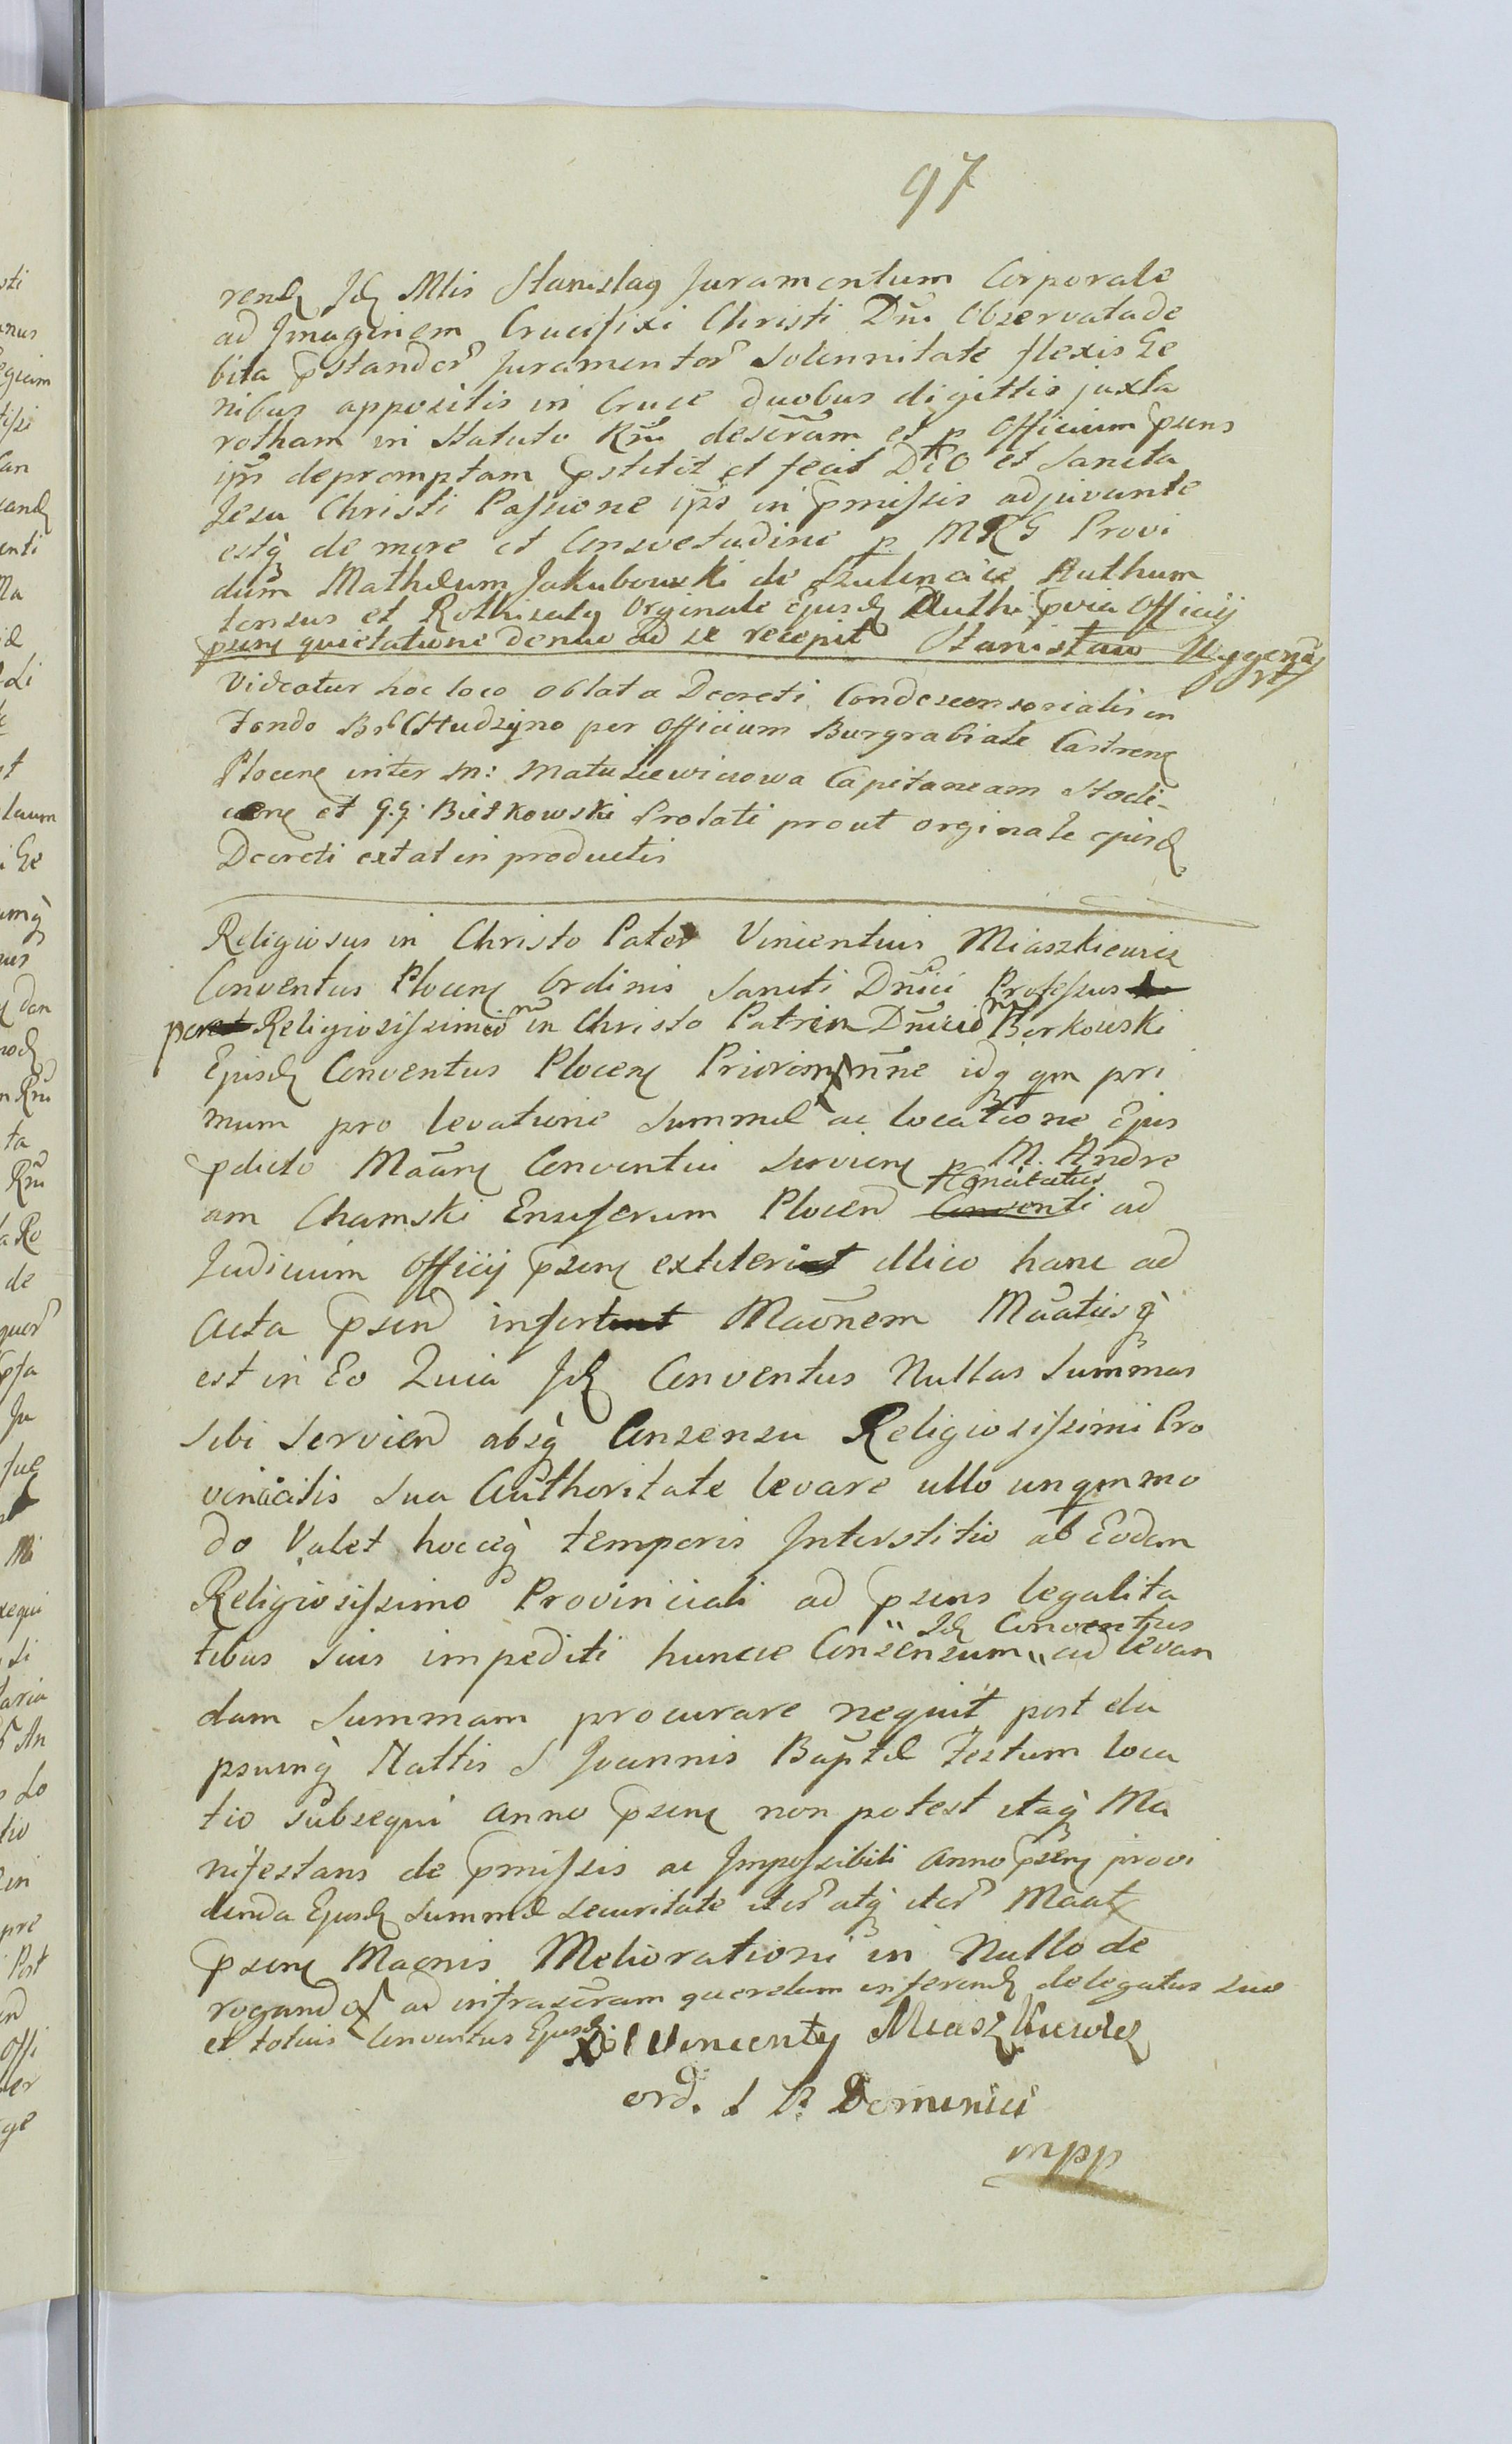 97
rend Jd Mtis Stanislaq Juramentum Corporale
ad Jmaginem Crucifixi Christi Dni Observata de
bita pstander Juramentor Solennitate flexis Ge
nibus appositis in Cruce duobus digittis juxta
rotham in Statuto Rni descram et p Officium psens
ipi depromptam pstitit et fecit Dto et Sancta
Jesu Christi Passione ips in pmissis adjuvante
estq de more et Consvetudine p MRG Provi
dum Mathæum Jakubowski de Ruthum
tensus et Rothisatq Orginale Ejusd Ruthi pvia Officij
psens quietatione denuo ad se recepit Stanisław
Videatur hoc loco oblata Decreti Condescensorialis in
Fondo Chudzyno per Officium Burgrabiale Castrens
Plocens inter M: Matusiewiczowa Capitaneam Stocli-
cens et G.G. Bieżkowski Prolati prout orginale ejusd
Decreti extat in productis
Religiosus in Christo Pater Vincentius Miaszkiewicz
Conventus Plocens Ordinis Sancti Dnici Professus
per Religiosissimum in Christo Patrem Dnicum Borkowski
Ejusd Conventus Plocens Priorem nne idq qm pri
mum pro levatione Summæ ac locatione Ejus
pdicto Maare Conventui Serviens p M. Andre
am Chamski Ensiferum Plocen Conventi ad
Judicium Officij psens extiterit illico hanc ad
Acta psend infert Maonem Maatus q
est in Eo Quia Jd Conventus Nullas Summas
sibi Servien absq Consensu Religiosissimi Pro
vincialis sua Authoritate levare ullo unqm mo
do Valet hoccq temporis Interstitio ab Eodem
Religiosissimo Provinciali ad psens legalita
Jd Conventus
tibus suis impediti huncce Consensum ad levan
dam Summam procurare nequit post ela
psumq Nattis S Joannis Baptæ Festum loca
tio subsequi anno psens non potest itaq Ma
nifestans de pmissis ac Impossibili anno psens provi
denda Ejusd Summæ securitate iter atq iter Maat
psens Maonis Meliorationi in Nullo de
rogando ad infrascram querelam inferend delegatus suo
et totius Conventus Ejusd X Vincenty Miaszkiewicz
ord. S P. Dominici
mpp